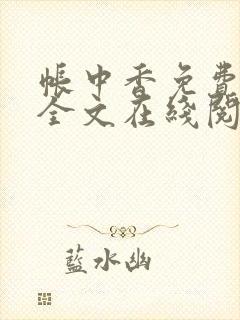 帳中香免費
全文在綫閱
藍水幽